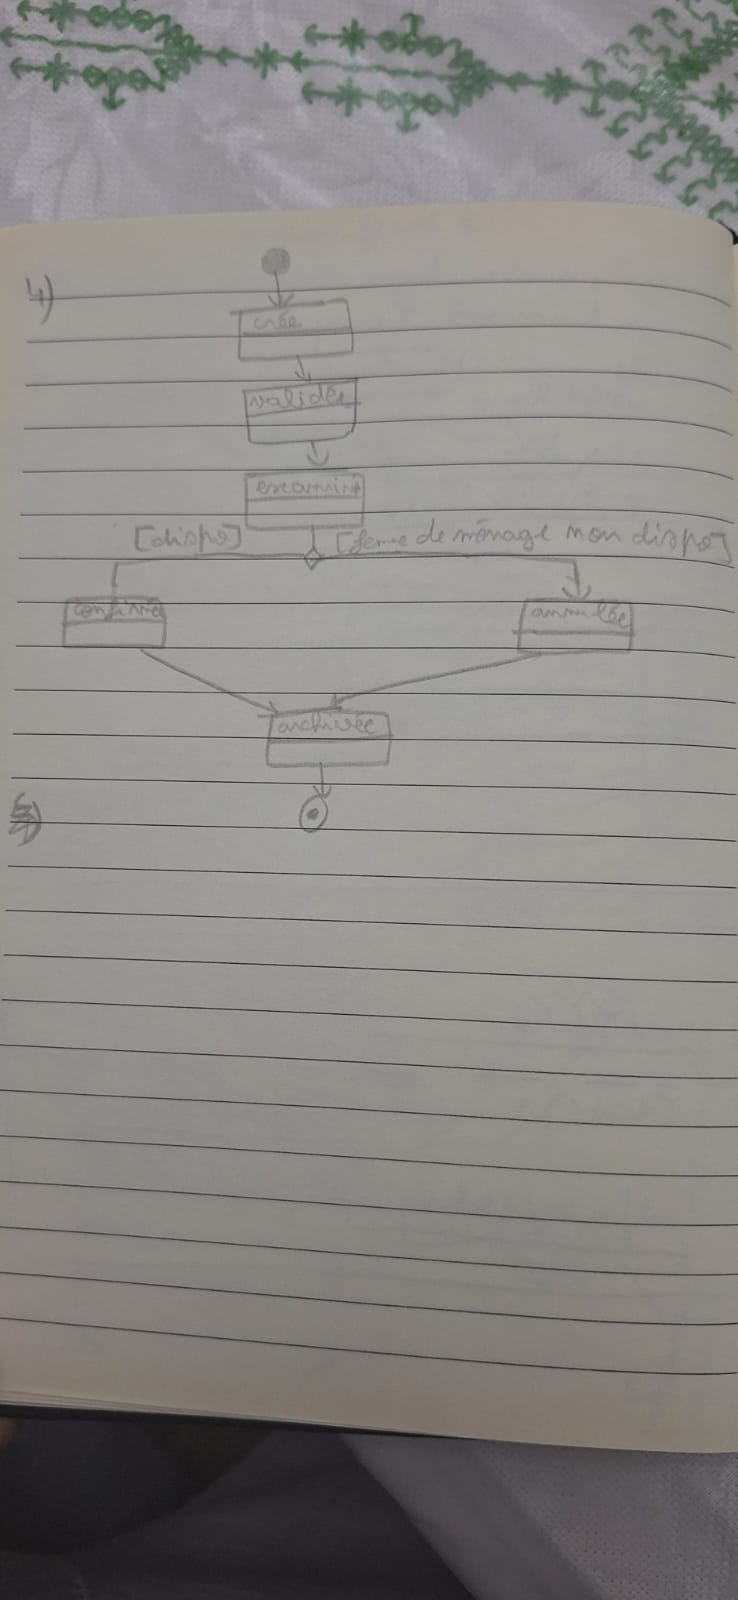 4)
crée
validée
examiné
[dispo] [femme de ménage non dispo]
confirmée
annulée
archivée